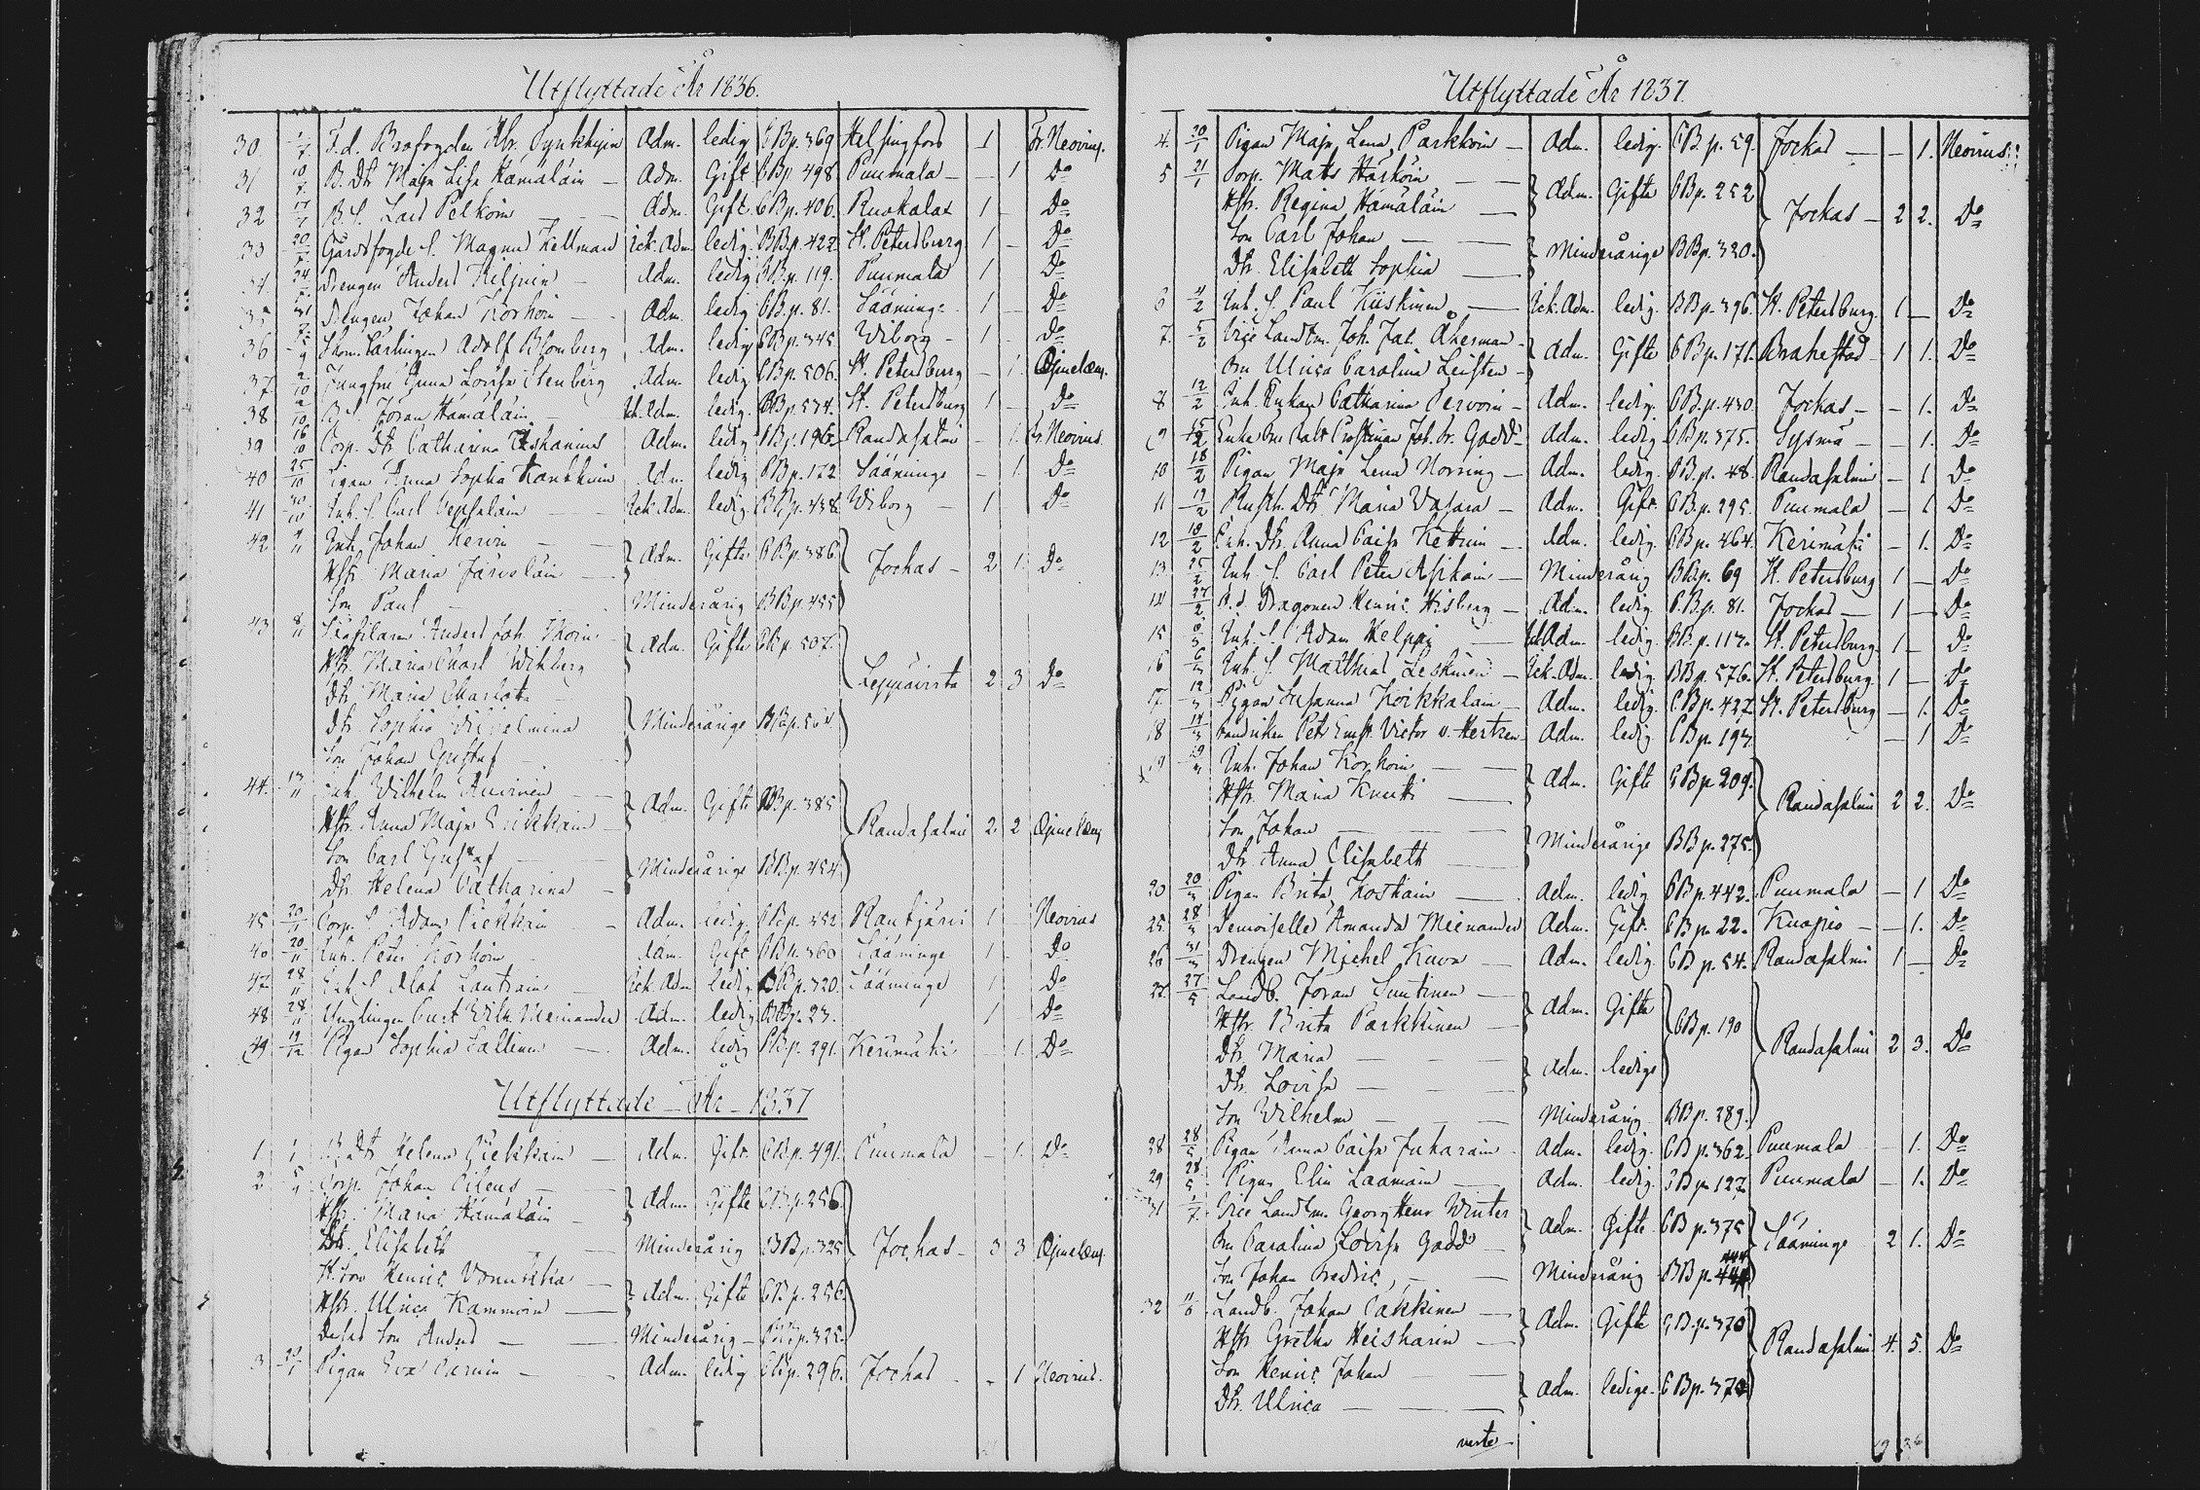 Utflyttade År 1836.
30 1/7 F.d. Brofogden Abr. Pynkkyin Adm. ledig CBp. 369 Helsingfors 1 Br. Neovius.
31 10/7 B. Dr Maja Lisa Hämäläin — Adm. Gift CBp. 498 Puumala — — 1 Do
32 17/7 B.S. Lars Pelkoin — Adm. Gift. CBp. 406. Ruokalax 1 — Do
33 20/7 Gårdsfogde S. Magnus Kellman Ick. Adm. ledig. BBp. 422. St. Petersburg 1 — Do
34 24/ Drengen Anders Kiljuin — Adm. ledig CBp. 119. Puumala 1 Do
35 31/7 Drengen Johan Korhoin — Adm. ledig CBp. 81. Sääminge 1 — Do
36 /9 Skom. Lärlingen Adolf Blomberg Adm. ledig CBp. 345 Wiborg — 1 — Do
37 2/10 Jungfru Anna Lovisa Stenberg Adm. ledig CBp. 506. St. Petersburg — 1.
38 2/10 B.S. Jöran Hämäläin — Ick. Adm. ledig. BBp. 534. St. Petersburg 1 — Do
39 16/10 Corp. Dr Catharina Adm. ledig CBp. 196. Randasalmi — 1. Br. Neovius.
40 25/10 Pigan Anna Sophia Adm. ledig CBp. 172 Sääminge — 1. Do
41 30/10 Inh. S. Carl Vepsäläin — Ick. Adm. ledig. BBp. 438 Wiborg — 1 Do
42 9/11 Inh. Johan — Adm. Gifte CBp. 386. Jockas — 2 1. Do
Hstr. Maria Järveläin —
Son Paul — Minderårig BBp. 455
43 8/11 Anders Joh. Thoin Adm. Gifte CBp. 507.
Hstr. Maria Charl. Wikberg Leppävirta 2 3 Do
Dr. Maria Charlotta —
Dr. Sophia Wilhelmina Minderårige BBp. 564
Son Johan Gustaf —
44. 13/11 Inh. Wilhelm Auvinen — Adm. Gifte CBp. 385
Hstr. Anna Maja Pirkkain — Randasalmi 2 2
Son Carl Gustaf — Minderårige BBp. 454.
Dr. Helena Catharina —
45 20/11 Corp. S. Adam — Adm. ledig CBp. 452 Rautjärvi 1 — Neovius
46 20/11 Inh. Peter Korhoin — Adm. Gift CBp. 360 Sääminge 1 — Do
47. 28/11 Inh. S. Olof Lautiain — Ick. Adm. ledig BBp. 320. Sääminge 1 Do
48 28/11 Ynglingen Curt Wilh. Meinander Adm. ledig CBp. 23. 1 Do
49 11/12 Pigan Sophia Sallinen — Adm. ledig CBp. 291. Kerimäki — 1. Do
Utflyttade — År — 1837
1 1/ Dr. Helena — Adm. Gift. CBp. 491. Puumala — 1. Do
2 5/ Corp. Johan — Adm. Gifte CBp. 256
Hstr. Maria Hämäläin —
Dr. Elisabeth — Minderårig BBp. 325 Jockas — 3 3
Henric — Adm. Gifte CBp. 256.
Hstr. Ulrica Kammoin —
Deras Son Anders — Minderårig — BBp. 325.
3 Pigan Eva — Adm. ledig CBp. 296. Jockas — 1 Neovius.
Utflyttade År 1837.
4. 20/1 Pigan Maja Lena Parkkoin — Adm. ledig. CBp. 59. Jockas — — 1. Neovius
5 21/1 Corp. Mats Häsköin — Adm. Gifte CBp. 252
Hstr. Regina Hämäläin — Jockas — 2 2. Do
Son Carl Johan — Minderårige BBp. 320.
Dr. Elisabeth Sophia —
6 4/2 Inh. S. Paul Kiiskinen — Ick. Adm. ledig. BBp. 396. St. Petersburg. 1 — Do
7. 5/2 Vice Landtm. Joh. Jac. Åkerman — Adm. Gifte CBp. 171. Brahestad — 1 1. Do
Fru Ulrica Carolina Leisten —
8 12/2 Inh. Enkan Catharina Pervoin — Adm. ledig. CBp. 430 Jockas — — 1. Do
9 15/2 Enke Fru Joh. Gadd — Adm. ledig CBp. 375. Sysmä — — 1. Do
10 18/2 Pigan Maja Lena Norring — Adm. ledig. CBp. 48. Randasalmi — 1 Do
11 19/2 Rusth. Dr. Maria Vasara — Adm. Gift. CBp. 295. Puumala — 1 Do
12 19/2 Inh. Dr. Anna Caisa Kettuin — Adm. ledig. CBp. 464. Kerimäki — 1. Do
13 25/2 Inh. S. Carl Peter Asikain — Minderårig BBp. 69 St. Petersburg 1 — Do
14 27/2 A.d. Dragonen Henric Hisberg — Adm. ledig CBp. 81. Jockas — 1 — Do
15 Inh. S. Adam — Ick. Adm. ledig. BBp. 113. St. Petersburg 1 — Do
16 6/3 Inh. S. Matthias Leskinen — Ick. Adm. ledig BBp. 576. St. Petersburg. 1 — Do
17. 12/3 Pigan Susanna Koikkalain — Adm. ledig. CBp. 427. St. Petersburg — 1. Do
18 14/3 Pet. Ernst Victor v. Hertzen — Adm. ledig CBp. 193. — 1 Do
19 Inh. Johan Korhoin — Adm. Gifte CBp 209.
Hstr. Maria Knuuti — Randasalmi 2 2. Do
Son Johan — Minderårige BBp. 275.
Dr. Anna Elisabeth —
20 20/3 Pigan Brita Koskain — Adm. ledig CBp. 442. Puumala — 1 Do
25. 28/3 Demoiselle Amanda Meinander Adm. Gift. CBp. 22. Kuopio — — 1. Do
26 31/3 Drengen Michel Kuva — Adm. ledig. CBp. 54. Randasalmi 1 — Do
27. 27/5 Landb. Jöran Suutinen — Adm. Gifte CBp. 190
Hstr. Brita Parkkinen —
Dr. Maria — Adm. ledige Randasalmi 2 3. Do
Dr. Lovisa —
Son Wilhelm — Minderårig BBp. 289.
28 28/5 Pigan Anna Caisa Juharain — Adm. ledig. CBp. 362. Puumala — 1. Do
29 28/5 Pigan Elin Laamain — Adm. ledig. CBp. 127. Puumala — 1. Do
31 1/7. Vice Landtm. Georg Henr. Winter Adm. Gifte. CBp. 375
Fru Carolina Lovisa Gadd — Sääminge 2 1. Do
Son Johan Fredric, — Minderårig BBp. 444
32 11/6 Landb. Johan — Adm. Gifte CBp. 370
Hstr. Gretha Heiskarin — Randasalmi 4. 5. Do
Son Henric Johan — Adm. ledige. CBp. 370
Dr. Ulrica —
verte